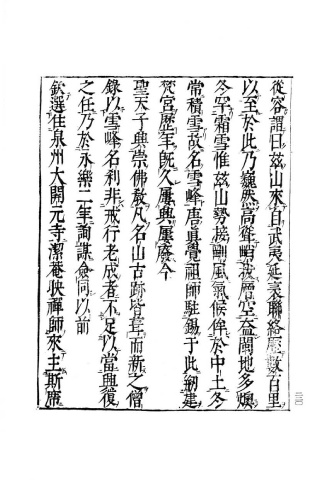 從容謂曰玆山來自武夷延袤聯絡歷數百里
以至於此乃巍然高聳嶒空蓋閩地多燠
冬罕霜雪惟玆山勢接劒風氣候侔於中土冬
常積雪故名雪峰唐眞覺祖師駐錫于此剏建
梵宮歷年旣久屢興屢廢今
聖天子興崇佛敎凡名山古跡皆葺而新之僧
錄以雪峰名刹非戒行老成者不足以當興復
之任乃於永樂二年詢謀僉同以前
欽選住泉州大開元寺潔菴映禪師來主斯席